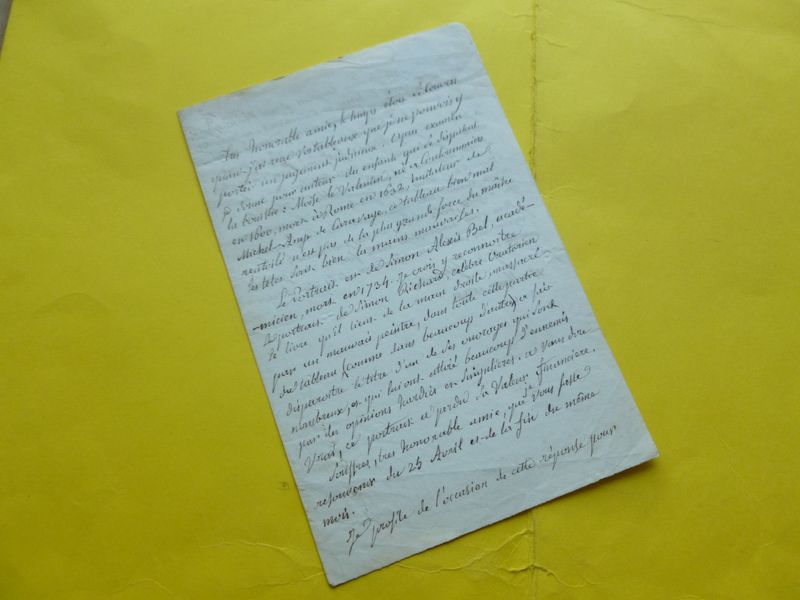 très honorable amie, le temps étoit si couvert
quand j'ai reçu vos tableaux que je ne pouvois y
porter un jugement judicieux. Après examen
je donne pour auteur du enfants qui se disputent
la bouillie: Moïse le Valentin, né à Coulommiers
en 1600, mort à Rome en 1632, imitateur de
Michel-Ange de Caravage, ce tableau bien mal
rentoilé n'est pas de la plus grande force du maître
les têtes sont bien la mains mauvaises.
Le Portrait est de Simon Alexis Bel, acadé-
-micien, mort en 1734. Je crois y reconnoitre
le portrait de Simon Richard, célèbre Oratorien
le livre qu'il tient de la main droite massacré
par un mauvais peintre, dans toute cette partie
du tableau (comme dans beaucoup d'autres) a fait
disparoitre le titre d'un de ses ouvrages qui sont
nombreux, et qui lui ont attiré beaucoup d'ennemis
par des opinions hardies et singulières. à vous dire
vrai, ce portrait a perdu sa valeur financière.
Souffrez, très honorable amie, que je vous fasse
resouvenir du 25 Avril et de la fin du même
mois.
Je profite de l'occasion de cette réponse pour